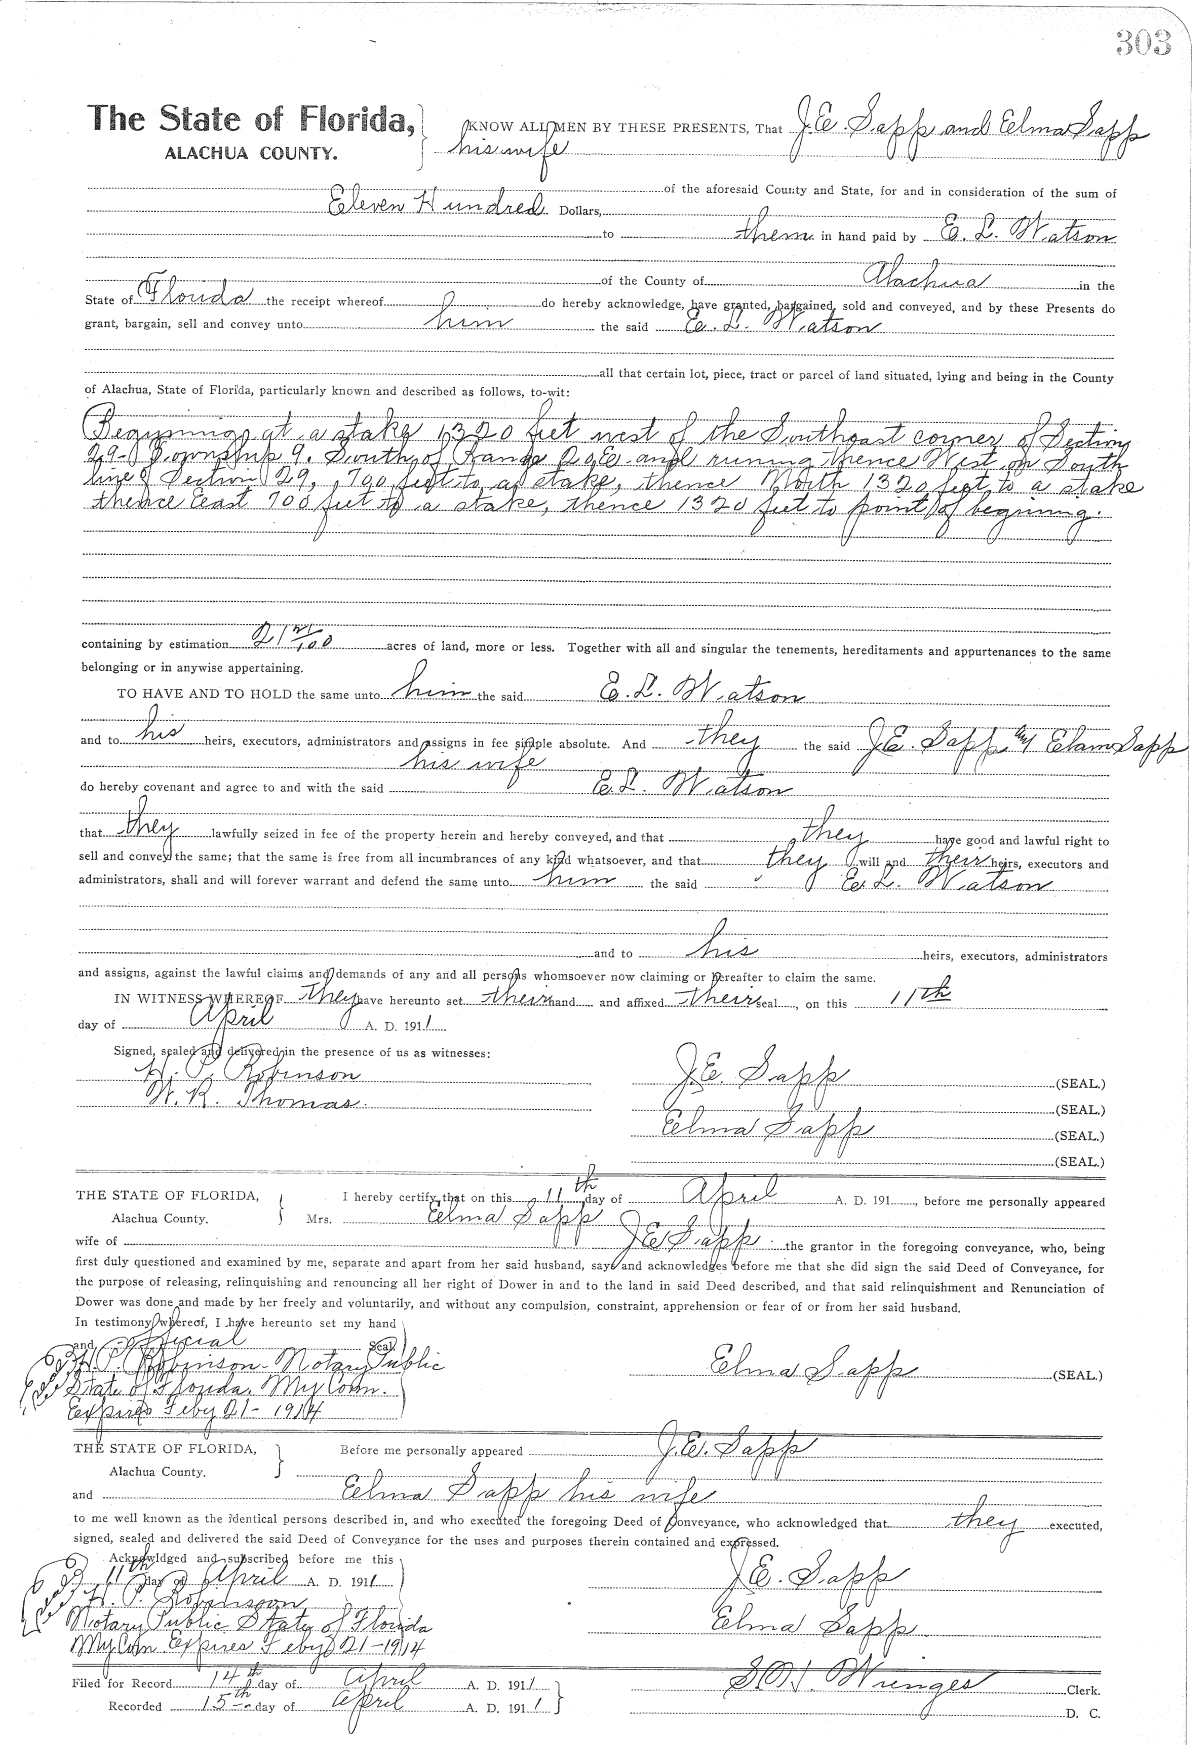 303
The State of Florida, KNOW ALL MEN BY THESE PRESENTS, That J.E. Sapp and Elma Sapp
ALACHUA COUNTY. his wife
of the aforesaid County and State, for and in consideration of the sum of
Eleven Hundred Dollars,
to them in hand paid by E. L. Watson
of the County of Alachua in the
State of Florida the receipt whereof do hereby acknowledge, have granted, bargained, sold and conveyed, and by these Presents do
grant, bargain, sell and convey unto him the said E. L. Watson
all that certain lot, piece, tract or parcel of land situated, lying and being in the County
of Alachua, State of Florida, particularly known and described as follows, to-wit:
Beginning at a stake 1320 feet west of the Southeast corner of Section
29- Township 9. South of Range 20 E and runing thence West on South
line of Section 29, 700 feet to a stake, thence North 1320 feet to a stake
thence East 700 feet to a stake, thence 1320 feet to point of beginning.
containing by estimation 21 21/100 acres of land, more or less. Together with all and singular the tenements, hereditaments and appurtenances to the same
belonging or in anywise appertaining.
TO HAVE AND TO HOLD the same unto him the said E. L. Watson
and to his heirs, executors, administrators and assigns in fee simple absolute. And they the said J.E. Sapp and Elam Sapp
his wife
do hereby covenant and agree to and with the said E. L. Watson
that they lawfully seized in fee of the property herein and hereby conveyed, and that they have good and lawful right to
sell and convey the same; that the same is free from all incumbrances of any kind whatsoever, and that they will and their heirs, executors and
administrators, shall and will forever warrant and defend the same unto him the said E. L. Watson
and to his heirs, executors, administrators
and assigns, against the lawful claims and demands of any and all persons whomsoever now claiming or hereafter to claim the same.
IN WITNESS WHEREOF they have hereunto set their hand and affixed their seal, on this 11th
day of April A. D. 1911
Signed, sealed and delivered in the presence of us as witnesses:
H. P. Robinson J.E. Sapp (SEAL.)
W. R. Thomas. (SEAL.)
Elma Sapp (SEAL.)
(SEAL.)
THE STATE OF FLORIDA, I hereby certify that on this 11th day of April A. D. 191, before me personally appeared
Alachua County. Mrs. Elma Sapp
wife of J E Sapp the grantor in the foregoing conveyance, who, being
first duly questioned and examined by me, separate and apart from her said husband, say and acknowledges before me that she did sign the said Deed of Conveyance, for
the purpose of releasing, relinquishing and renouncing all her right of Dower in and to the land in said Deed described, and that said relinquishment and Renunciation of
Dower was done and made by her freely and voluntarily, and without any compulsion, constraint, apprehension or fear of or from her said husband.
In testimony whereof, I have hereunto set my hand
and official Seal
H. P. Robinson- Notary Public Elma Sapp (SEAL.)
State of Florida. My Com.
Expires Feby 21- 1914
THE STATE OF FLORIDA, Before me personally appeared J.E. Sapp
Alachua County.
and Elma Sapp his wife
to me well known as the identical persons described in, and who executed the foregoing Deed of Conveyance, who acknowledged that they executed,
signed, sealed and delivered the said Deed of Conveyance for the uses and purposes therein contained and expressed.
Acknowldged and subscribed before me this
11th day of April A. D. 1911 J.E. Sapp
H. P. Robinson
Notary Public State of Florida Elma Sapp
My Com Expires Feby 21-1914
Filed for Record 14th day of April A. D. 1911 S. H. Wienges Clerk.
Recorded 15th day of April A. D. 1911 D. C.